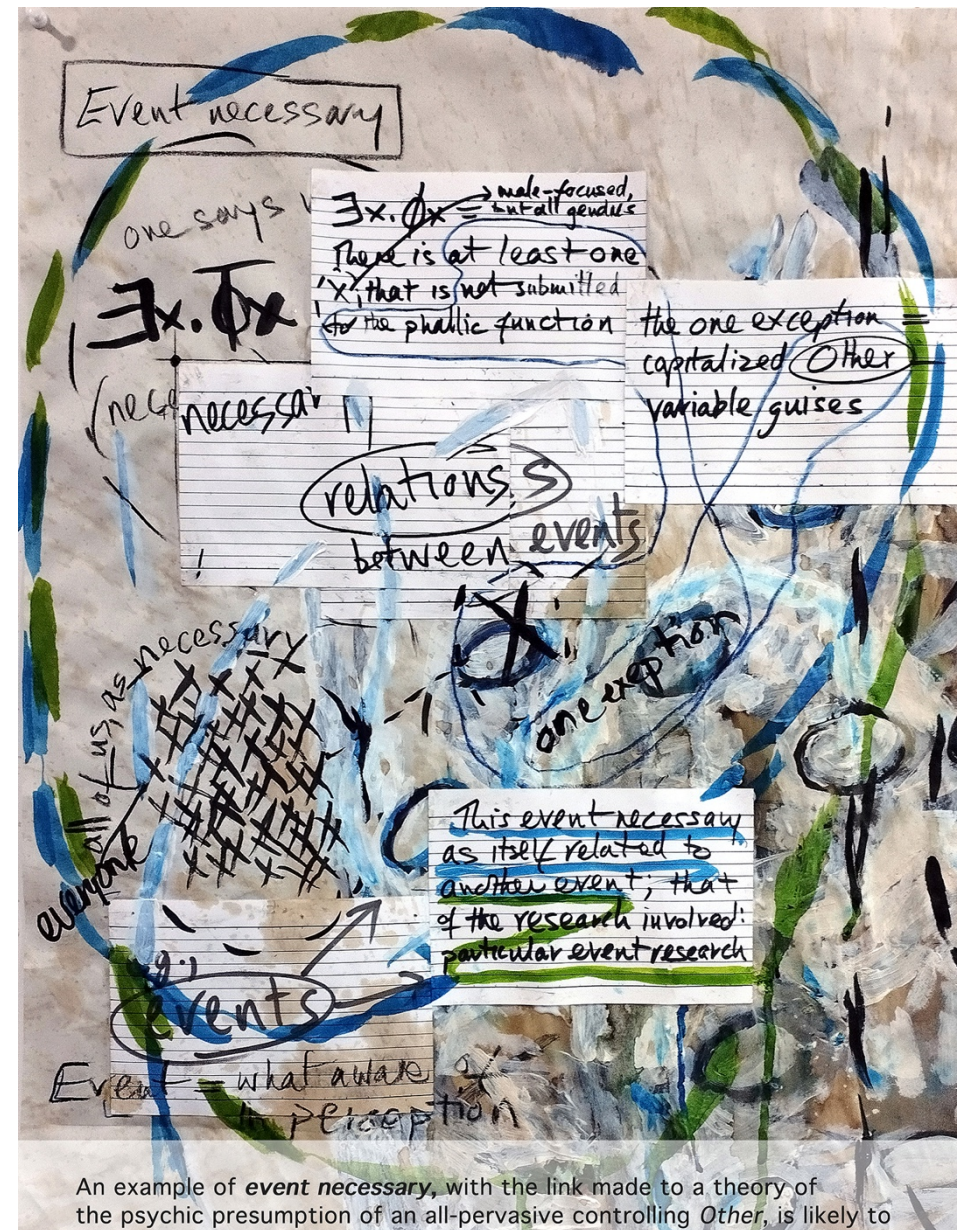 Event necessary
one says
∃x.Φ̅x
∃x.Φx = male-focused,
but all genders
There is at least one
'x', that is not submitted
to the phallic function
the one exception =
capitalized Other
variable guises
necessar
relations s
between events
!
X
one exeption
all of us, as necessary
everyone
This event necessary
as itself related to
another event; that
of the research involved:
particular event research
events
Event = what aware of
in perception
An example of event necessary, with the link made to a theory of
the psychic presumption of an all-pervasive controlling Other, is likely to